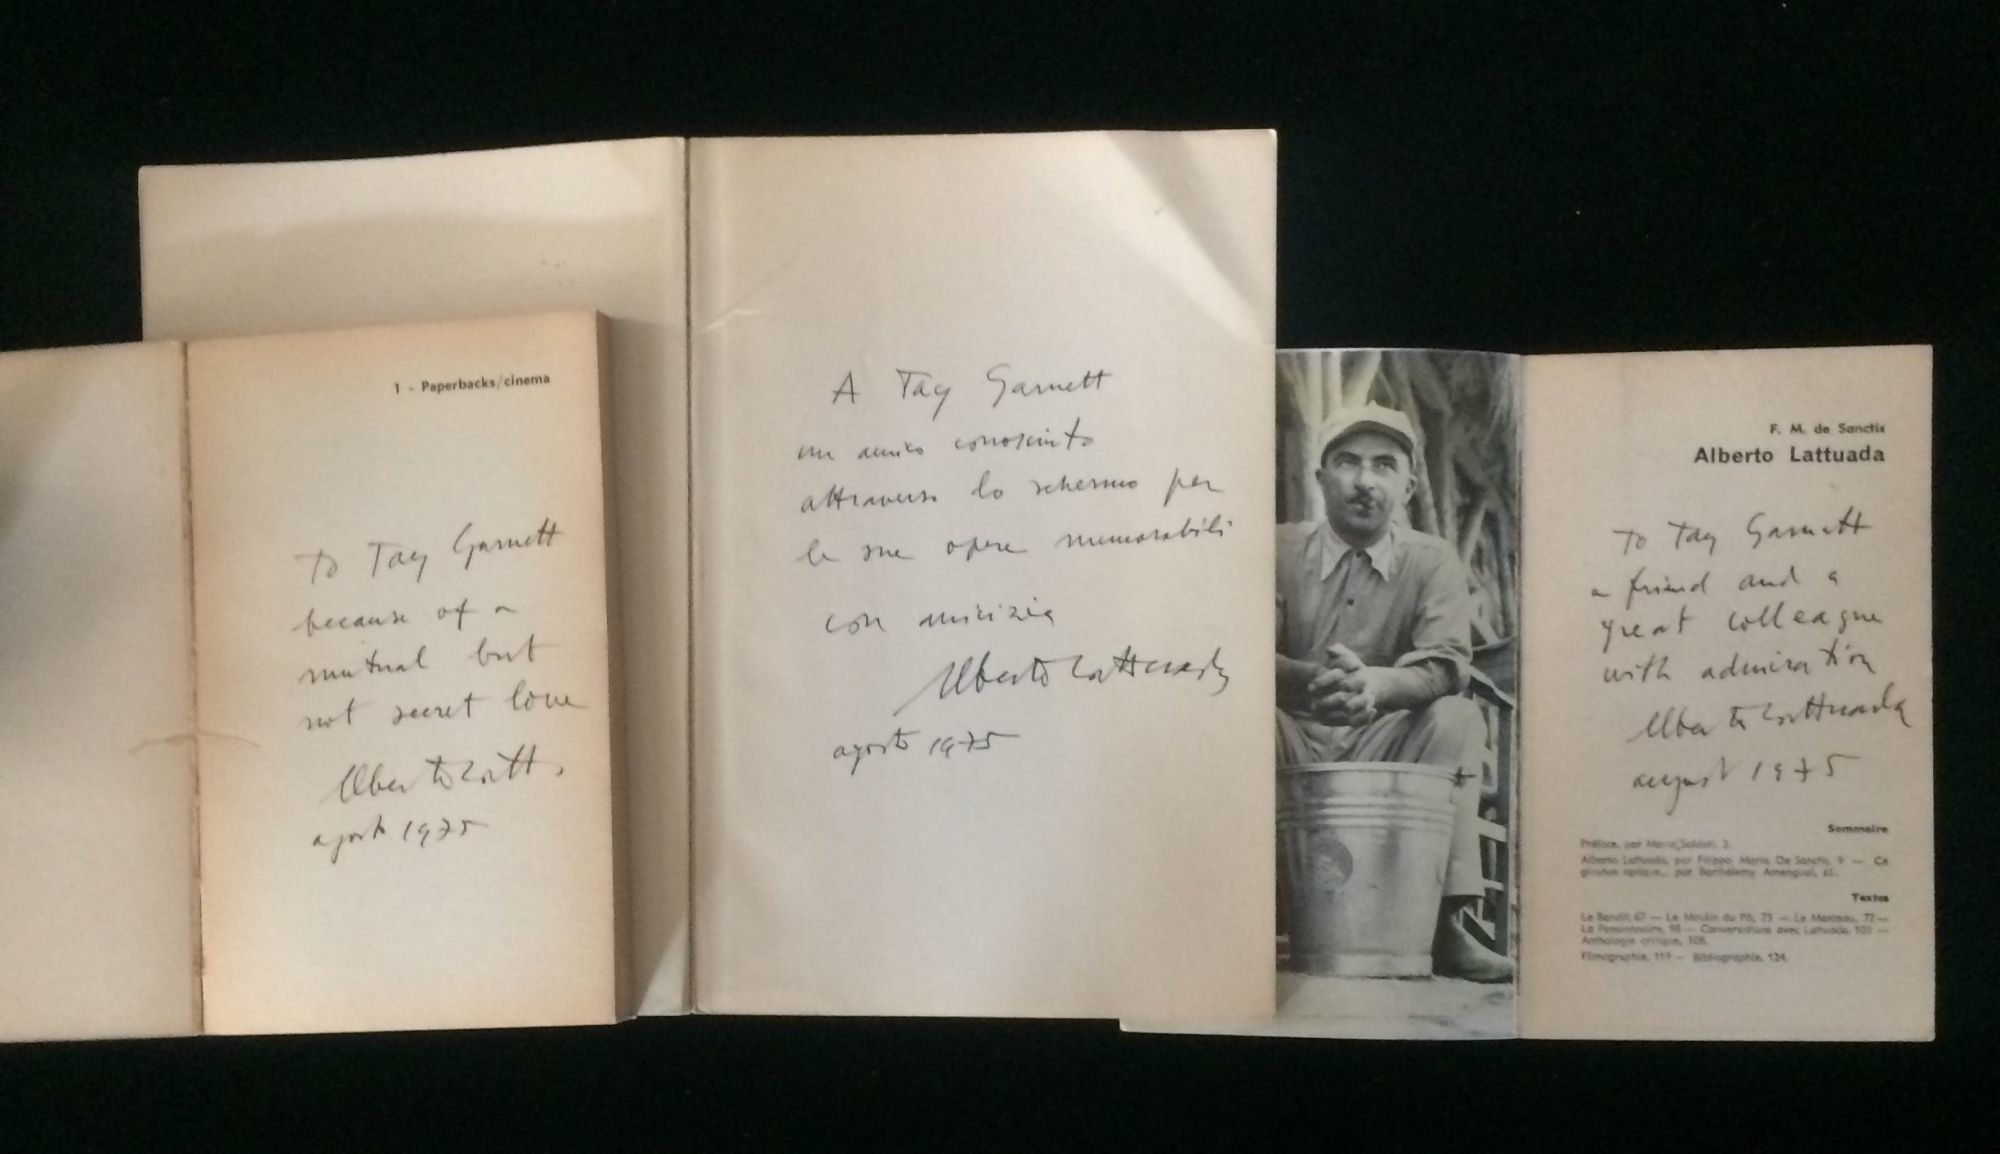 1 - Paperbacks/cinema
To Tay Garnett
because of a
mutual but
not secret love
Alberto Latt
agosto 1975
A Tay Garnett
un amico conosciuto
attraverso lo schermo per
le sue opere memorabili
con amicizia
Alberto Lattuada
agosto 1975
F. M. de Sanctis
Alberto Lattuada
To Tay Garnett
a friend and a
great colleague
with admiration
Alberto Lattuada
august 1975
Sommaire
Préface, par Mario Soldati, 3.
Alberto Lattuada, par Filippo Maria De Sanctis, 9 — Ce
glouton optique... par Barthélemy Amengual, 61.
Textes
Le Bandit, 67 — Le Moulin du Pô, 73 — Le Manteau, 77 —
La Pensionnaire, 98 — Conversations avec Lattuada, 101 —
Anthologie critique, 108.
Filmographie, 119 — Bibliographie, 124.